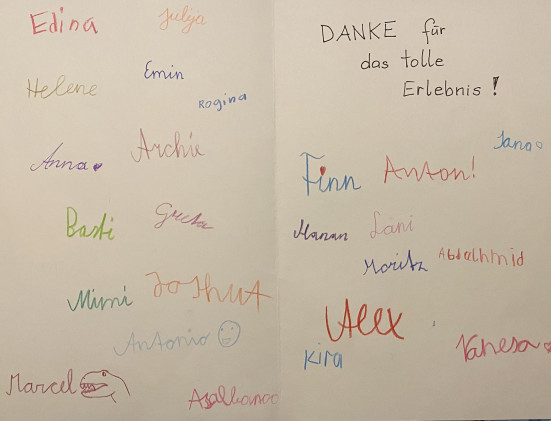 Edina
Julija
Helene
Emin
Rogina
Anna
Archie
Basti
Greta
Mimi
Joshua
Antonio
Marcel
DANKE für
das tolle
Erlebnis!
Finn
Anton!
Manan
Lani
Moritz
Abdalhmid
Alex
Kira
Vanesa